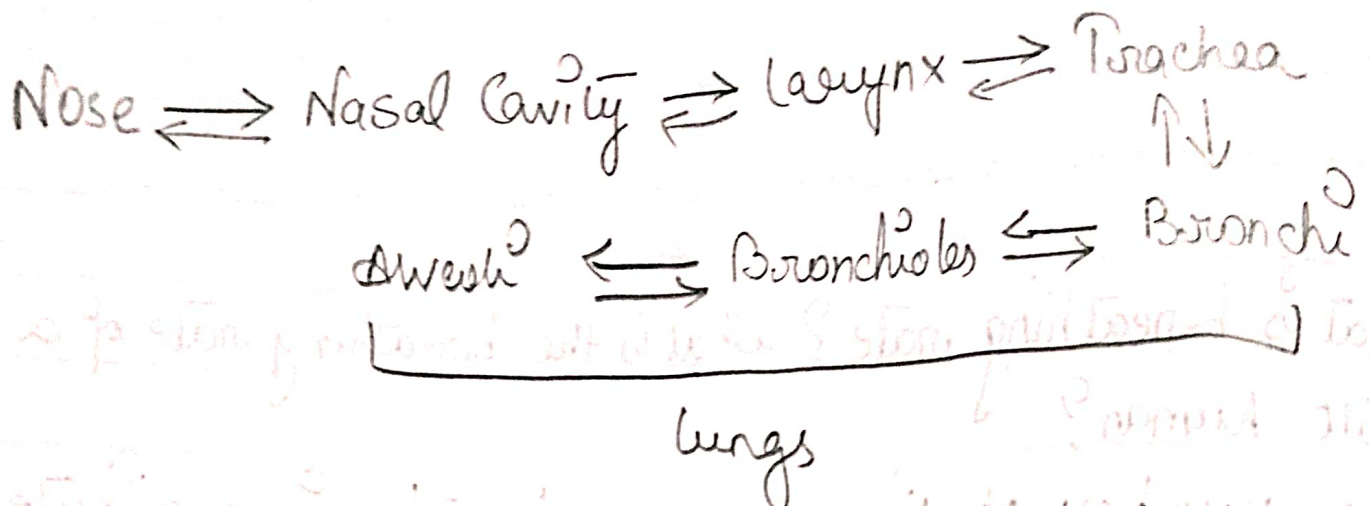 Nose ⇌ Nasal Cavity ⇌ larynx ⇌ Trachea
⇅
Alveoli ⇌ Bronchioles ⇌ Bronchi
lungs